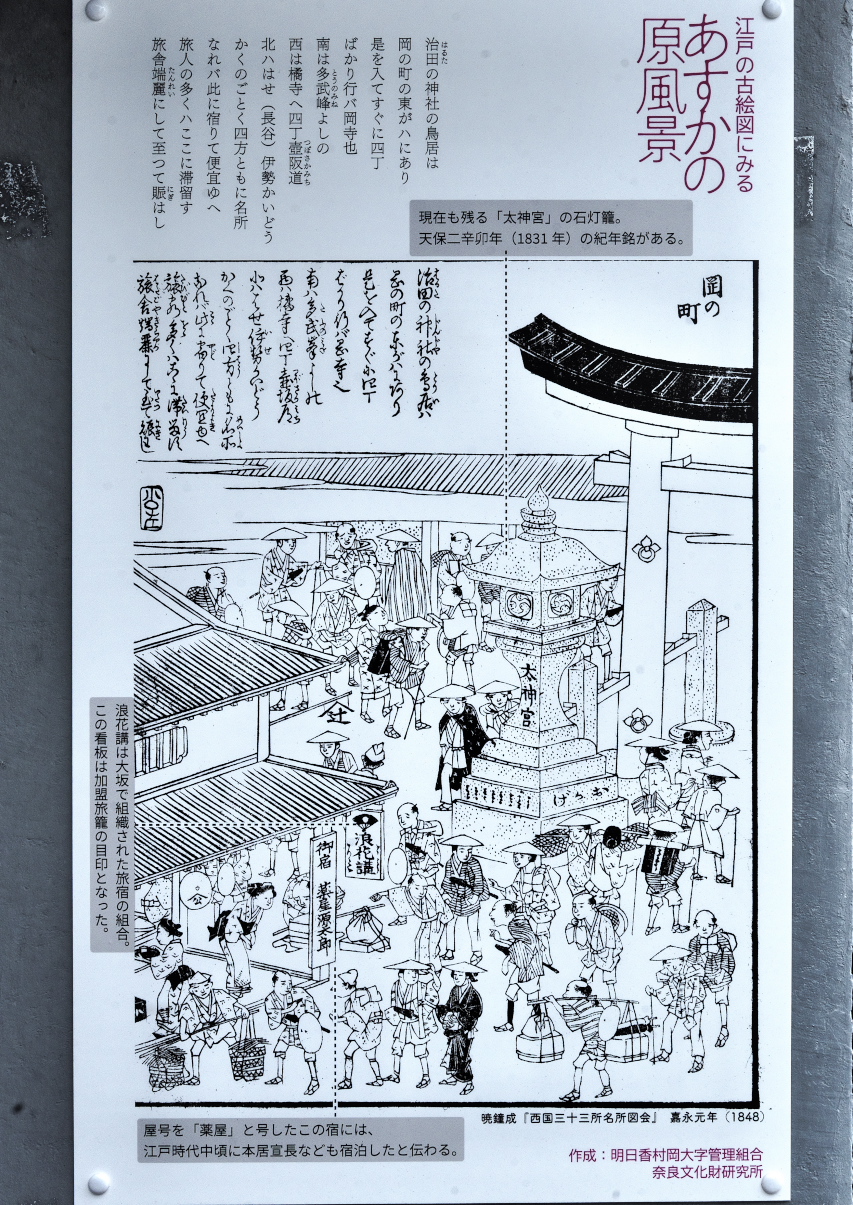 江戸の古絵図にみる
あすかの
原風景
治田の神社の鳥居は
はるた
岡の町の東がハにあり
是を入てすぐに四丁
ばかり行バ岡寺也
南は多武峰よしの
とうのみね
西は橘寺へ四丁壺阪道
つぼさかみち
北ハはせ（長谷）伊勢かいどう
かくのごとく四方ともに名所
なれバ此に宿りて便宜ゆへ
旅人の多くハここに滞留す
旅舎端麗にして至つて賑はし
たんれい
にぎ
現在も残る「太神宮」の石灯籠。
天保二辛卯年（1831 年）の紀年銘がある。
岡の
町
治田の神社の鳥居ハ
岡の町の東がハにあり
是を入てすぐに四丁
ばかり行バ岡寺也
太神宮
おかげ
浪花講
御宿 薬屋源太郎
浪花講は大坂で組織された旅宿の組合。
この看板は加盟旅籠の目印となった。
屋号を「薬屋」と号したこの宿には、
江戸時代中頃に本居宣長なども宿泊したと伝わる。
暁鐘成『西国三十三所名所図会』 嘉永元年（1848）
作成：明日香村岡大字管理組合
奈良文化財研究所